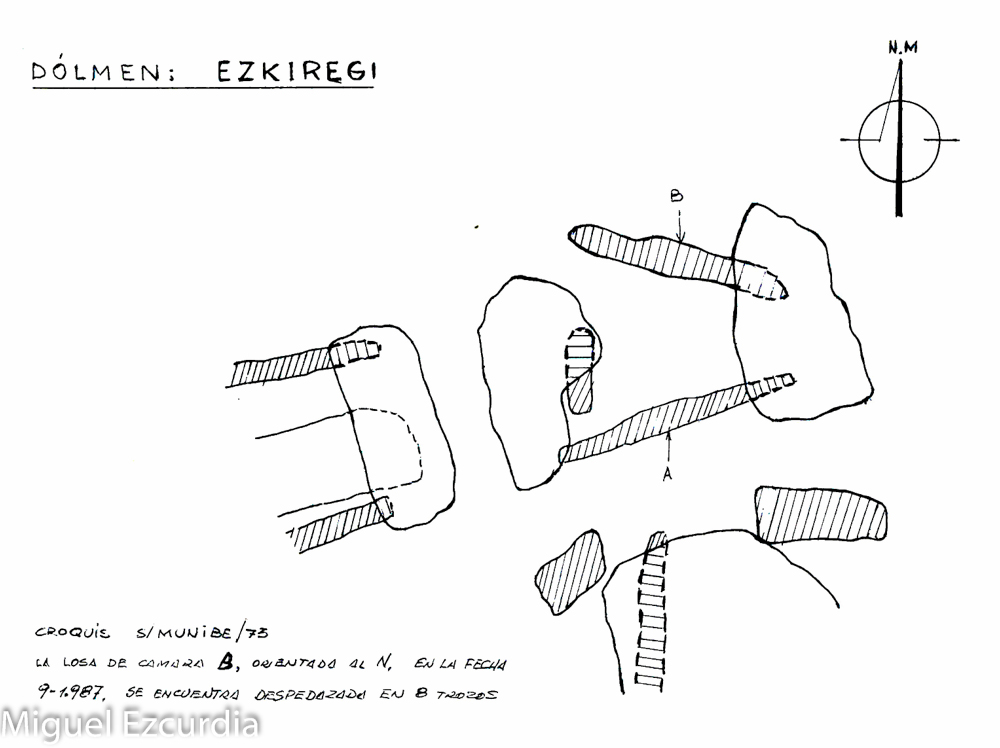 DÓLMEN: EZKIREGI
N.M
B
A
CROQUIS S/MUNIBE/73
LA LOSA DE CAMARA B, ORIENTADA AL N, EN LA FECHA
9-1.987, SE ENCUENTRA DESPEDAZADA EN 8 TROZOS
Miguel Ezcurdia